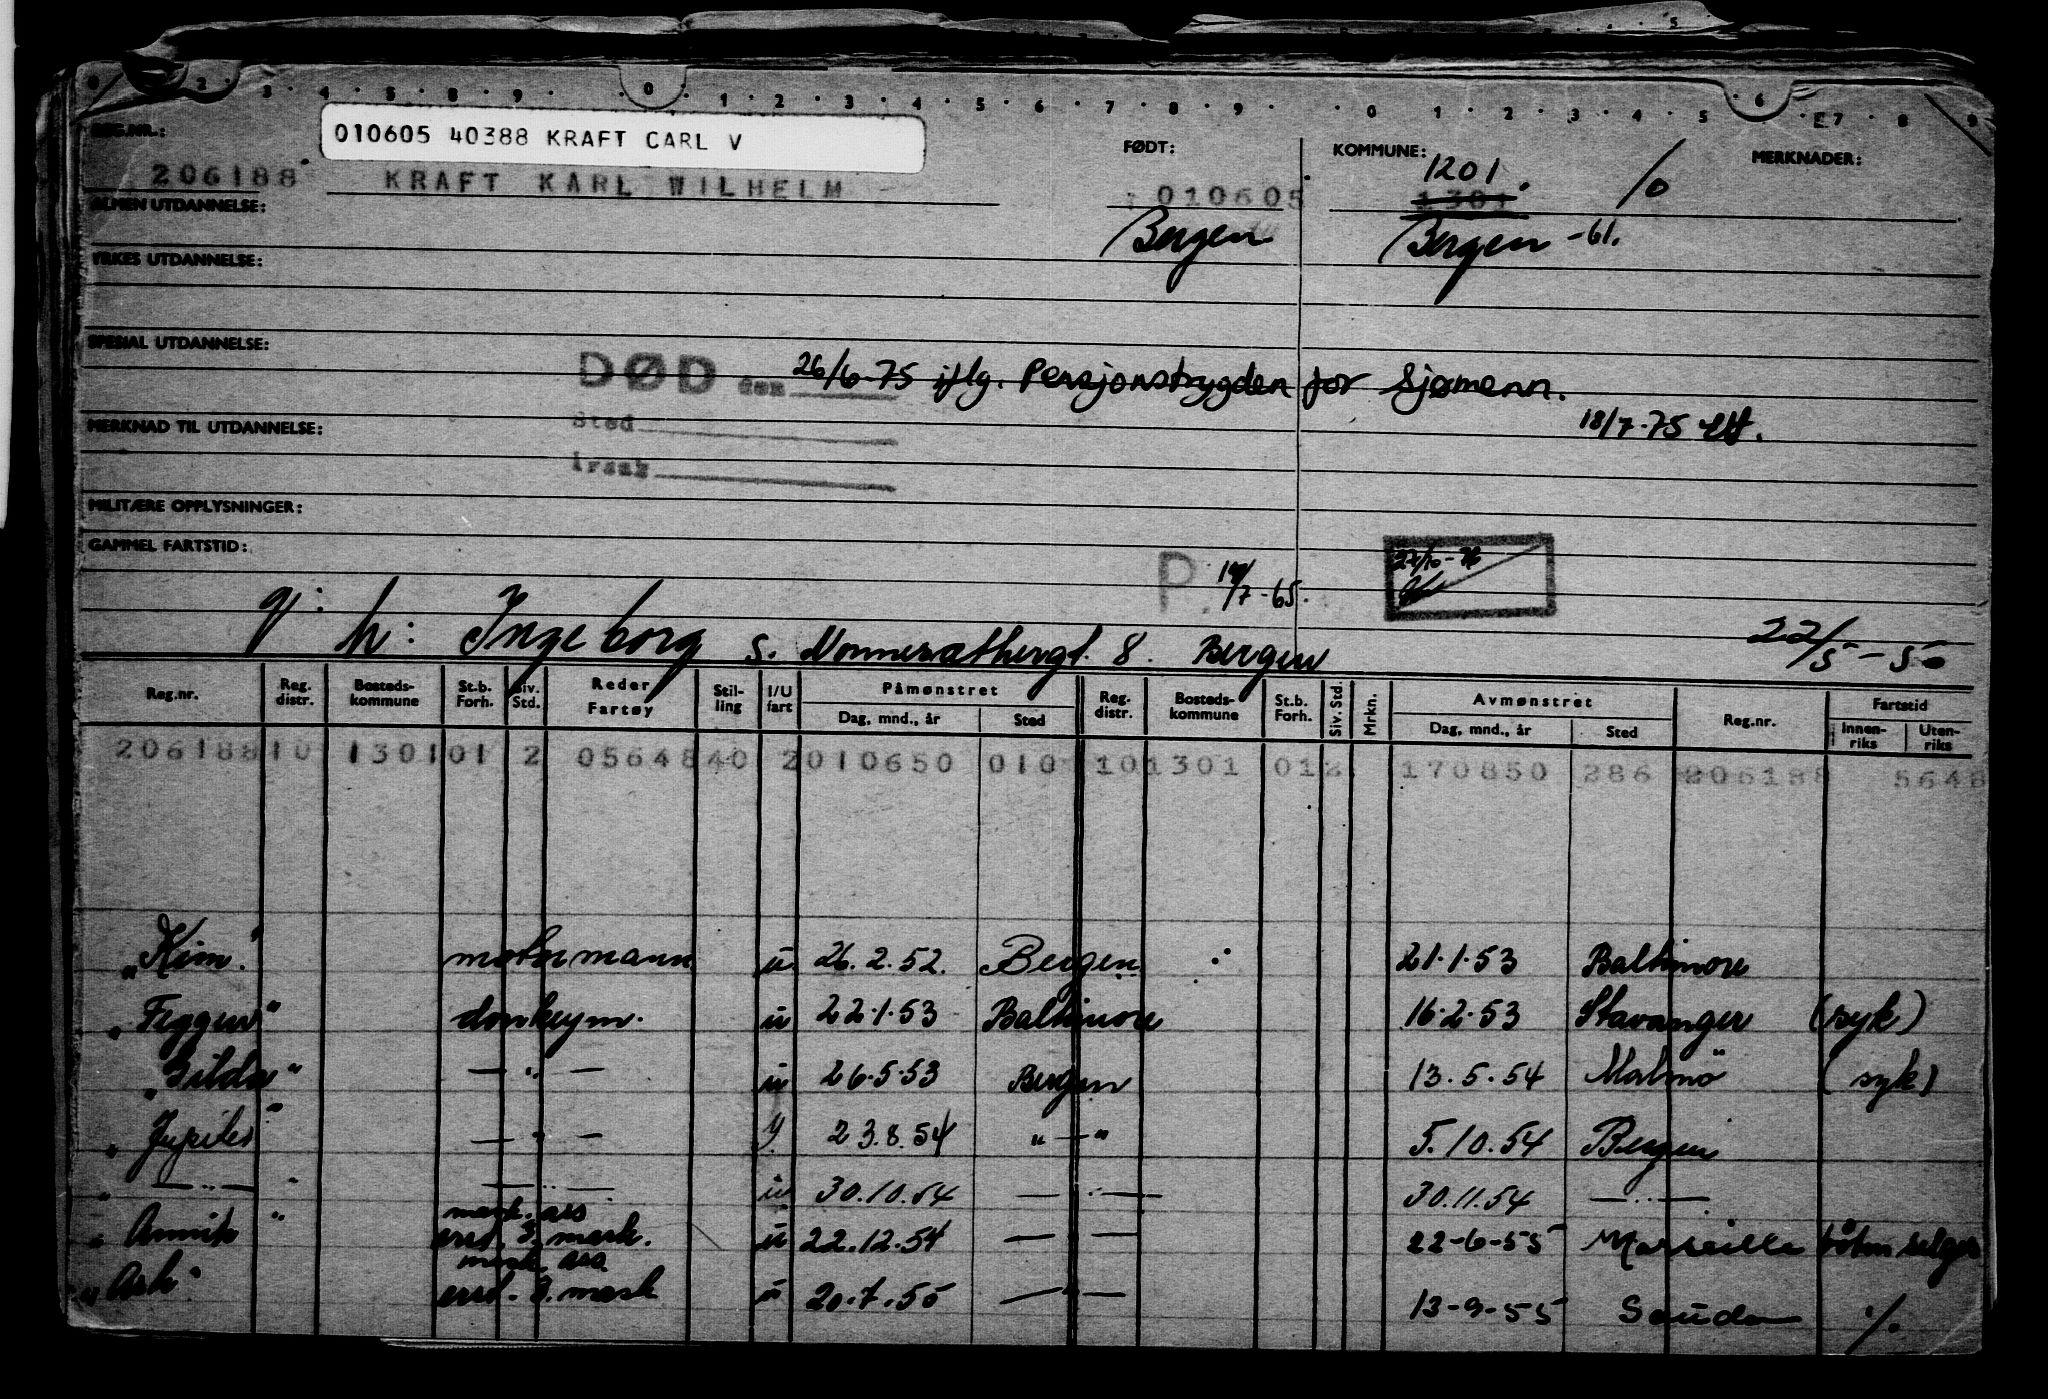 010605 40388 KRAFT CARL V
REG.NR.: FØDT: KOMMUNE: MERKNADER:
206188 KRAFT KARL WILHELM 010605 1301 1201
ALMEN UTDANNELSE: Bergen Bergen -61.
YRKES UTDANNELSE:
SPESIAL UTDANNELSE:
DØD den 26/6-75 iflg. Pensjonstrygden for Sjømenn.
Sted 18/7-75
MERKNAD TIL UTDANNELSE:
årsak
MILITÆRE OPPLYSNINGER:
GAMMEL FARTSTID:
P 14/7-65.
gj: h: Ingeborg s. Nonnesæthergt. 8. Bergen 22/5-50
Reg.nr. Reg. distr. Bosteds- kommune St.b. Forh. Siv. Std. Reder Fartøy Stil- ling I/U fart Påmønstret Dag, mnd., år Sted Reg. distr. Bosteds- kommune St.b. Forh. Siv. Std. Mrkn. Avmønstret Dag, mnd., år Sted Reg.nr. Fartstid Innen- riks Uten- riks
206188 10 1301 01 2 05648 40 2 010650 010 10 1301 01 2 170850 286 206188 5648
"Kim" motormann u 26.2.52. Bergen 21.1.53 Baltimore
"Feggen" donkeym. u 22.1.53 Baltimore 16.2.53 Stavanger (syk)
"Gilda" — " — u 26.5.53 Bergen 13.5.54 Malmö (syk)
— " — 23.8.54 " — " 5.10.54 Bergen
" — " — " — " — u 30.10.54 — " — 30.11.54 — " —
"Annik" mask. ass erst. 3. mask. u 22.12.54 — " — 22-6-55 Marseille båten selges
"Ask" mask. ass. erst. 3. mask u 20.7.55 — " — 13-9-55 Sauda ./.